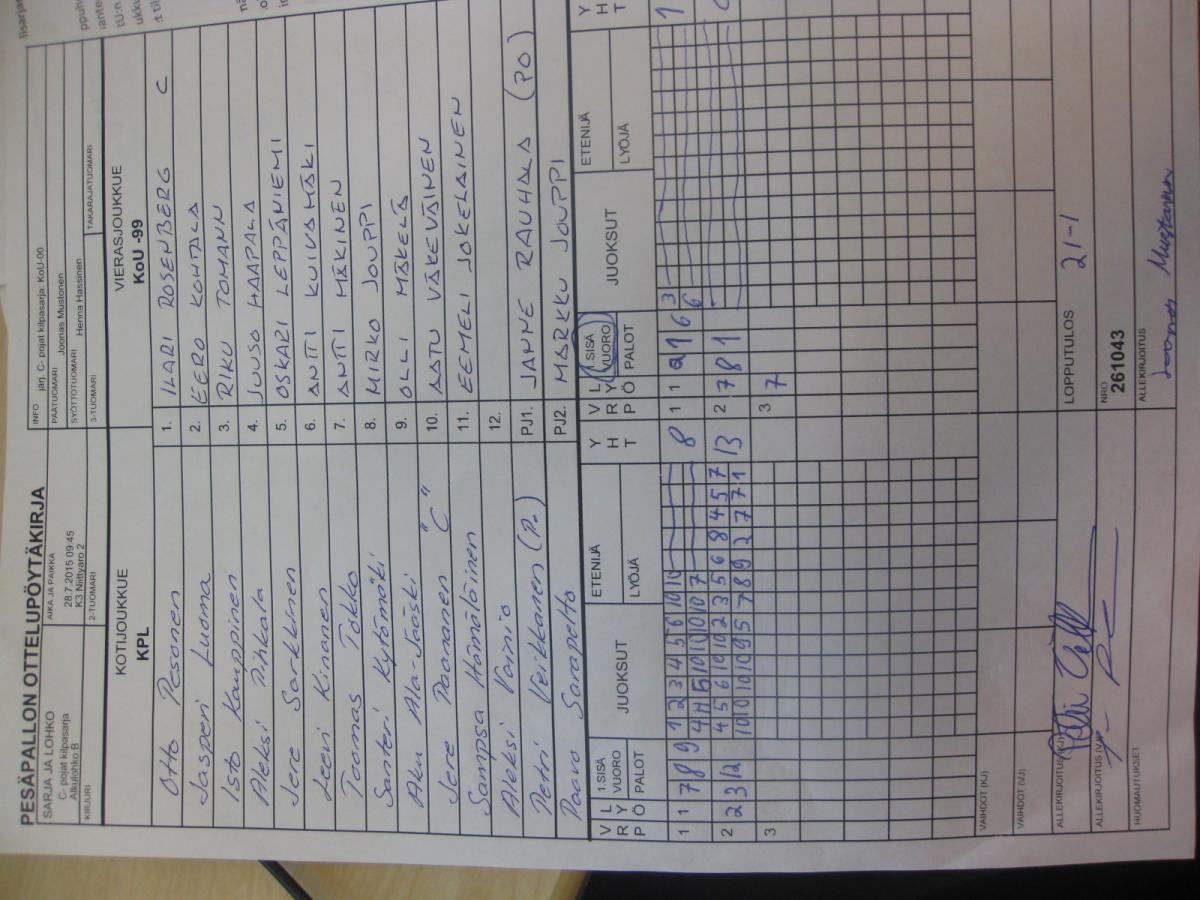 PESÄPALLON OTTELUPÖYTÄKIRJA
SARJA JA LOHKO
C- pojat kilpasarja
Alkulohko B
AIKA JA PAIKKA
28.7.2015 09:45
K3 Niittyaro 2
INFO järj. C- pojat kilpasarja: KoU-00
PÄÄTUOMARI Joonas Mustonen
SYÖTTÖTUOMARI Henna Hassinen
KIRJURI
2-TUOMARI
3-TUOMARI
TAKARAJATUOMARI
KOTIJOUKKUE
KPL
VIERASJOUKKUE
KoU -99
Otto Pesonen 1. ILARI ROSENBERG C
Jasperi Luoma 2. EERO KOHTALA
Isto Kauppinen 3. RIKU TOMANN
Aleksi Pihkala 4. JUUSO HAAPALA
Jere Sarkkinen 5. OSKARI LEPPÄNIEMI
Leevi Kinanen 6. ANTTI KUIVAMÄKI
Toomas Tokko 7. ANTTI MÄKINEN
Santeri Kytömäki 8. MIRKO JOUPPI
Aku Ala-Jääski 9. OLLI MÄKELÄ
Jere Paananen "C" 10. AATU VÄKEVÄINEN
Sampsa Hämäläinen 11. EEMELI JOKELAINEN
Aleksi Vainio 12.
Petri Veikkanen PJ1. JANNE RAUHALA (PO)
Paavo Sarapelto PJ2. MARKKU JOUPPI
V R P L Y Ö 1.SISÄ VUORO PALOT JUOKSUT ETENIJÄ LYÖJÄ Y H T
V R P L Y Ö 1.SISÄ VUORO PALOT JUOKSUT ETENIJÄ LYÖJÄ Y H T
1 1 7 8 9 1 2 3 4 5 6 10 10 8
1 1 2 1 6 3 1
4 11 5 10 10 10 10 7
6 6
2 2 3 12 4 5 6 10 10 2 3 5 6 8 4 5 7 13
2 7 8 1
10 10 10 10 9 5 7 8 9 2 7 7 1
3
3 7
VAIHDOT (KJ)
VAIHDOT (VJ)
ALLEKIRJOITUS (KJ)
LOPPUTULOS 21-1
ALLEKIRJOITUS (VJ)
NRO
261043
HUOMAUTUKSET
ALLEKIRJOITUS
Joonas Mustonen